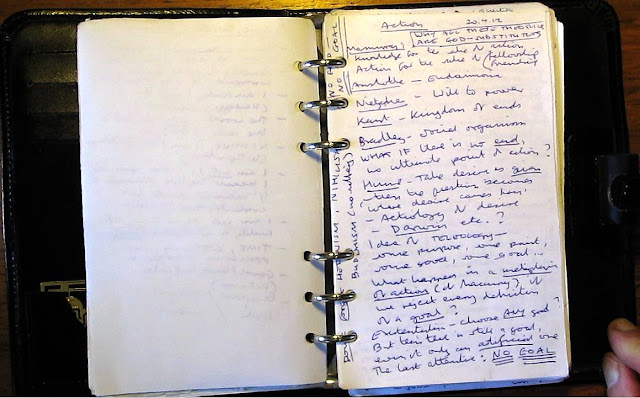 Action 20.4.12
WHY ALL THESE THEORIES
ARE GOD-SUBSTITUTES
Knowledge for the sake of action
Action for the sake of fellowship
friendship
Aristotle – Eudaimonia
Nietzsche – Will to power
Kant – Kingdom of ends
Bradley – social organism
WHAT IF there is no end,
no ultimate point of action?
Hume – Take desire as given
– then the question becomes
where desire comes from,
– Aetiology of desire
– Darwin etc.?
Idea of TELEOLOGY –
some purpose, some point,
some good, some goal...
What happens in a metaphysics
of action (cf Macmurray), if
we reject every definition
of a goal?
Existentialism – choose ANY goal?
But then there is still a goal,
even if only an artificial one
The last alternative: NO GOAL
HEDONISM, NIHILISM, NO END
NO GOAL
BUDDHISM